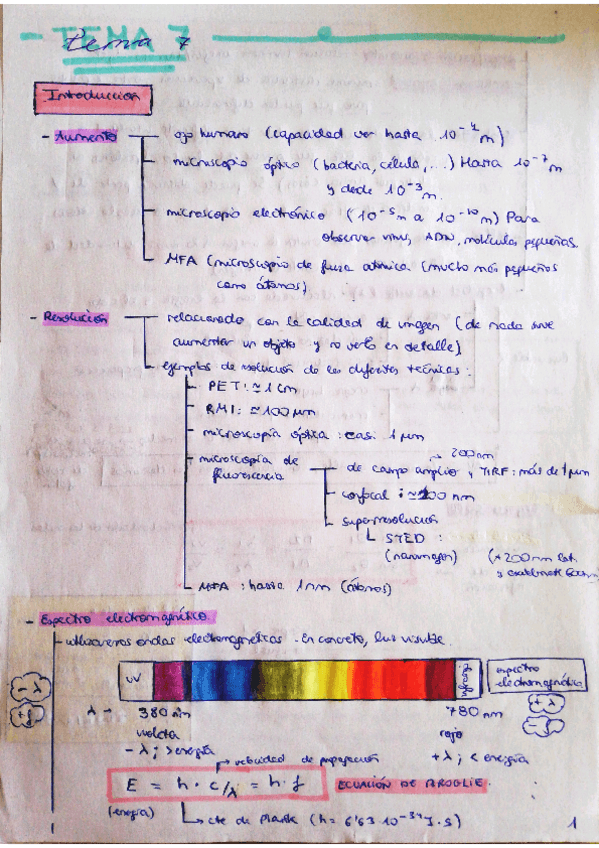 - TEMA 7
tema 7
Introducción
- Aumento
ojo humano (capacidad ver hasta 10⁻⁴ m)
microscopio óptico (bacteria, célula, ...) Hasta 10⁻⁷ m
y desde 10⁻³ m.
microscopio electrónico (10⁻⁵ m a 10⁻¹⁰ m) Para
observar virus, ADN, moléculas pequeñas.
MFA (microscopio de fuerza atómica (mucho más pequeños
como átomos)
- Resolución
relacionado con la calidad de imagen (de nada sirve
aumentar un objeto y no verlo en detalle)
ejemplos de resolución de las diferentes técnicas:
PET: ≃ 1 cm
RMI: ≃ 100 μm
microscopía óptica: casi 1 μm
microscopía de
fluorescencia
200 nm
de campo amplio y TIRF: más de 1 μm
confocal: ≃ 200 nm
superresolución
STED:
(nanoimagen)
(≈200 nm lat.
MFA: hasta 1 nm (átomos)
- Espectro electromagnético.
utilizaremos ondas electromagnéticas. En concreto, luz visible.
UV
espectro
electromagnético
- λ
+ f
+ λ
- f
λ → 380 nm
780 nm
violeta
rojo
- λ ; > energía
+ λ ; < energía
velocidad de propagación
E = h · c/λ = h · f
ECUACIÓN DE BROGLIE.
(energía)
cte de Plank (h = 6'63 10⁻³⁴ J·s)
1